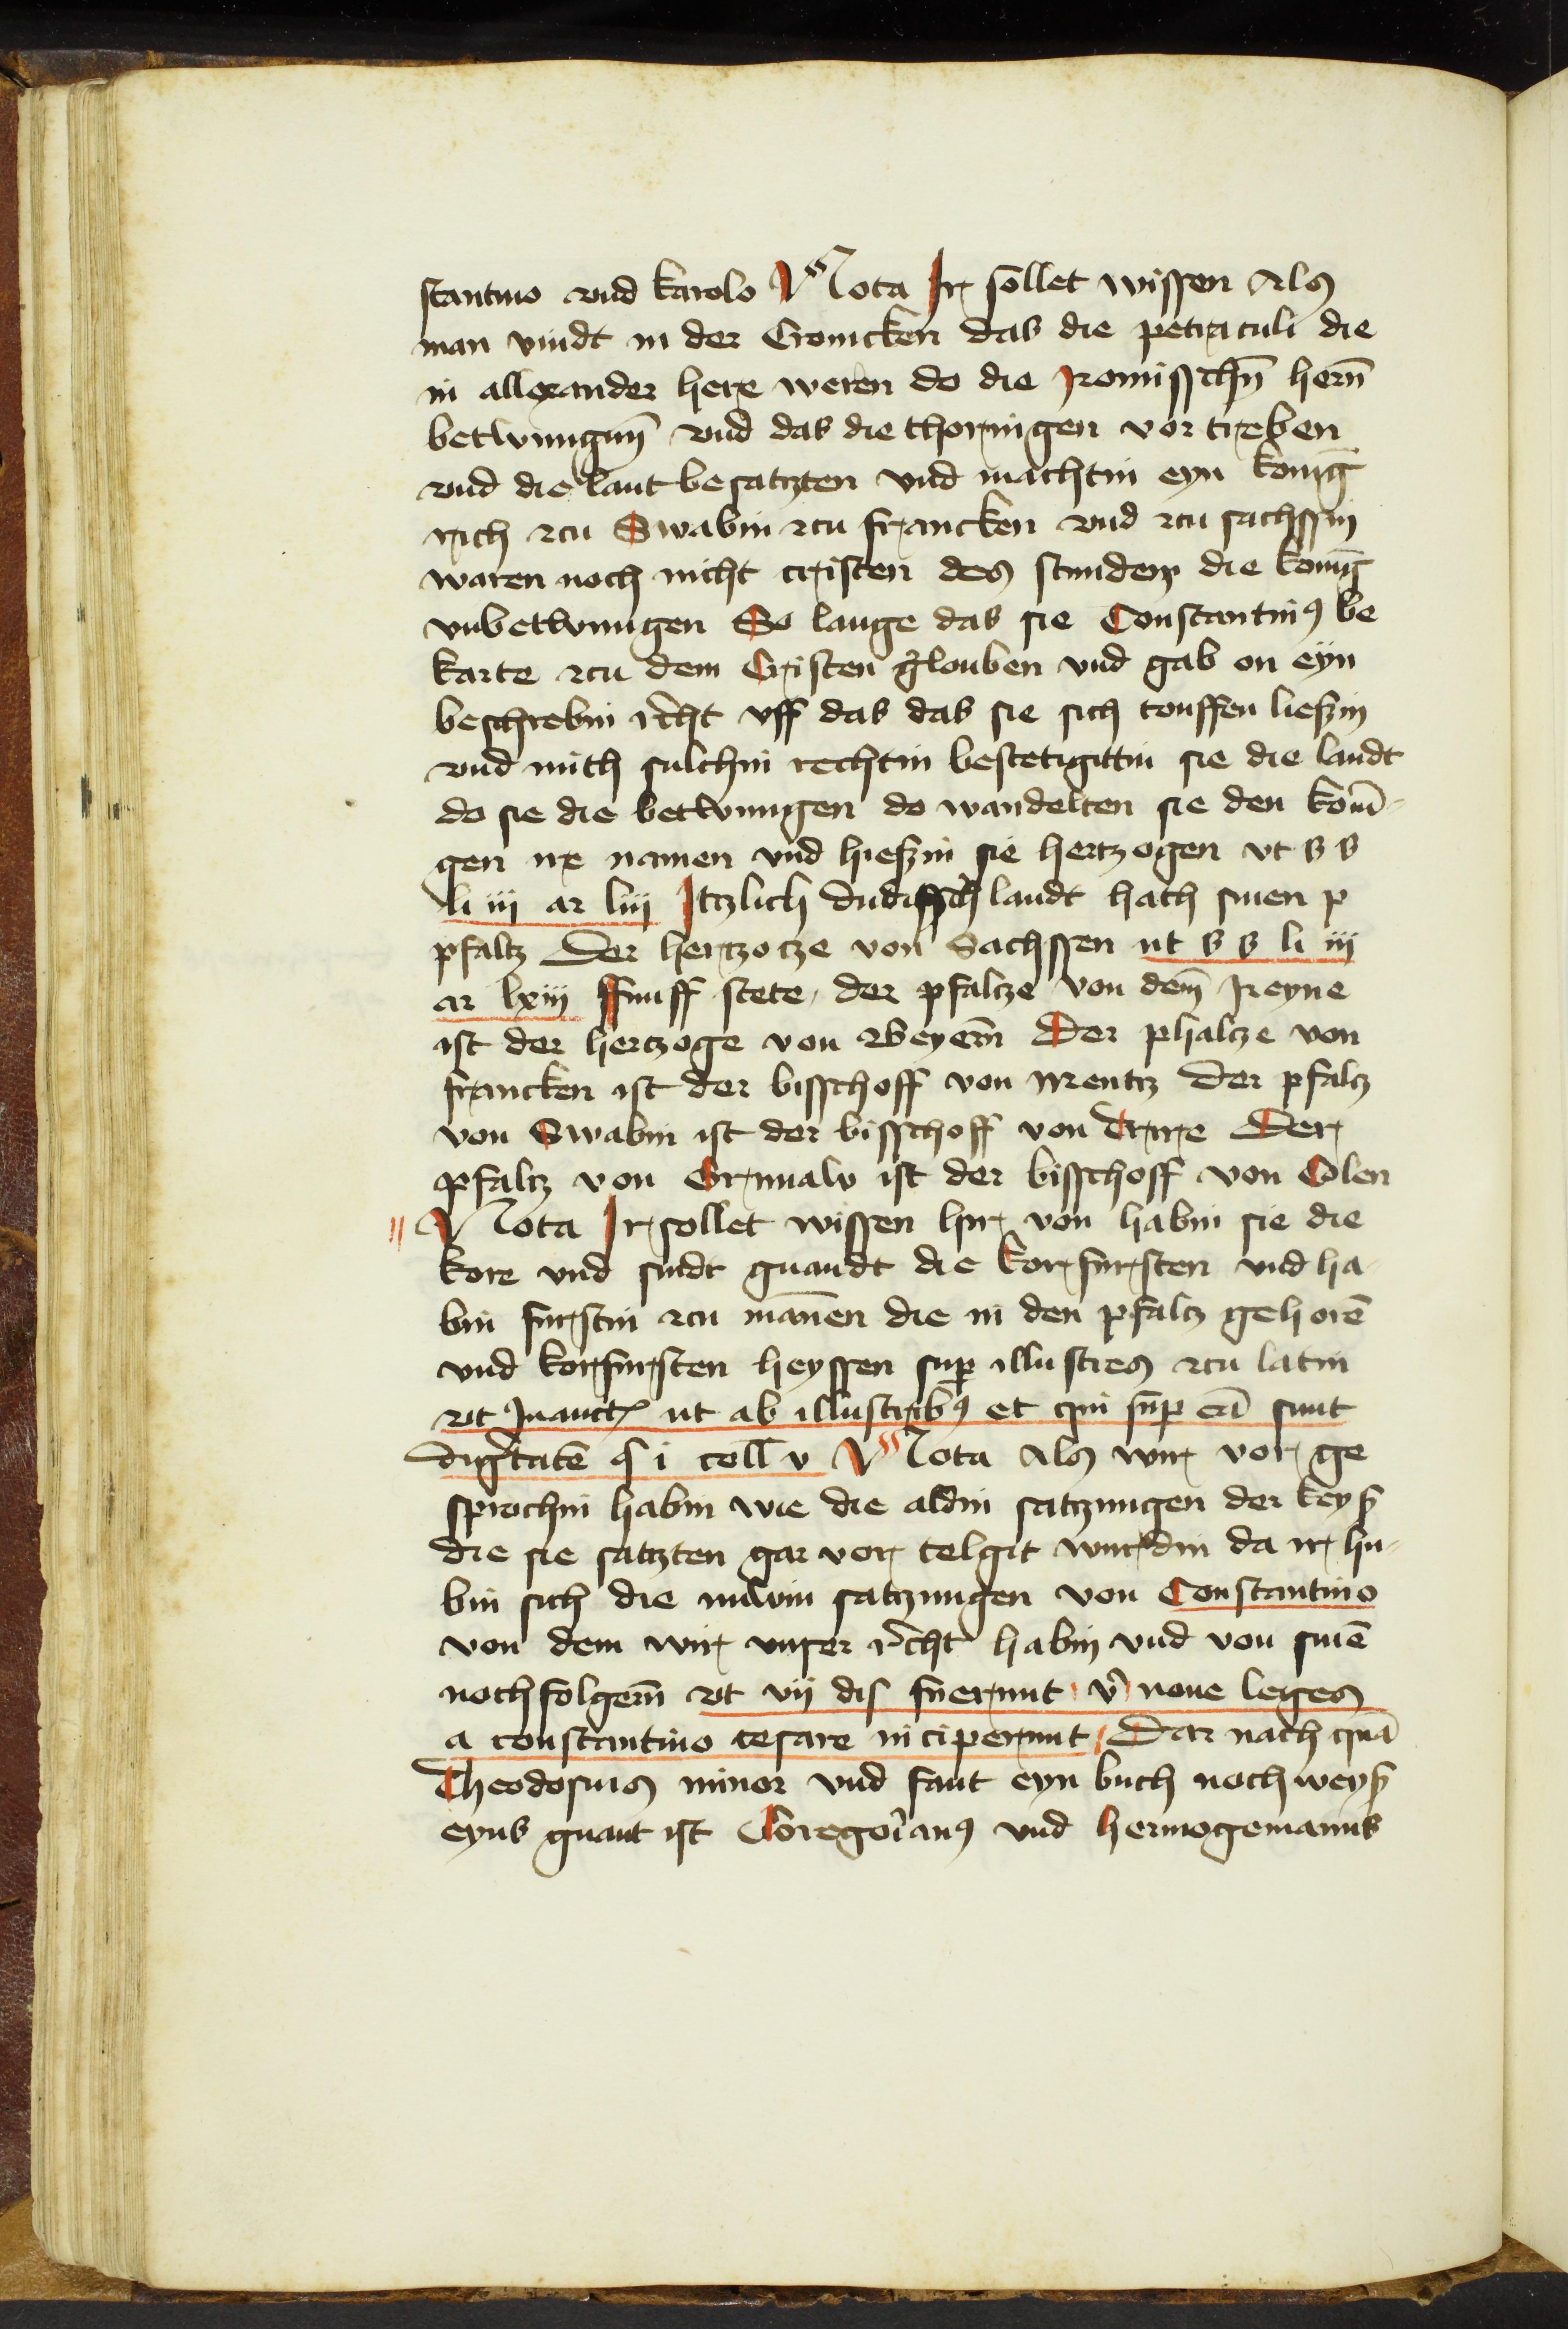 stantino vnd karolo Nota Ir sollet wissen Als
man vindt in der Cronicken das die petraculi die
in allexander here weren do die romisschn̄ hern̄
betwungin̄ vnd das die thoringen vortreben
vnd die lant besatzten vnd machtin eyn koniḡ
rich zcu Swabin zcu francken vnd zcu sachssin
waren noch nicht cristen des stunden die koniḡ
vnbetwungen So lange das sie Constantinꝰ be
karte zcu dem Cristen glouben vnd gab on eyn
beschrebin rͤcht vff das das sie sich touffen lieszin
vnd mith sulchin rechtin bestetigittin sie die landt
do sie die betwungen do wandelten sie den konī-
gen ire namen vnd hieszin sie hertzogen vt s s
li iii ar liii Itzlich dudissch landt hath sinen p
pfaltz Der hertzotze von Sachssen ut s s li iii
ar lxiii ffunff stete, der pfaltze von dem̄ Reyne
ist der hertzoge von Beyern̄ Der phaltze von
francken ist der bisschoff von Mentz Der pfaltz
von Swabin ist der bisschoff von Trire Der
pfaltz von ist der bisschoff von Colen
Nota Ir sollet wissen hir von habin sie die
kore vnd sindt gnandt die korfursten vnd ha-
bin furstin zcu mānen die in den pfaltz gehorē
vnd korfursten heyssen suꝑ illustres zcu latin
vt Inauct ut ab illustribꝰ et qui suꝑ eā sunt
dignitatē § i coll v Nota Als wir vor ge
sprochin habin wie die aldin satzungen der keyß
die sie satzten gar vor telget wurdin da ir hu-
bin sich die nuwin satzungen von Constantino
von dem wir vnser rͤcht habin vnd von sinē
nochfolgern̄ vt vii dis fuerunt v̊ noue leges
a constantino cesare inciperunt Dar nach quā
Theodosius minor vnd fant eyn buch noch weyß
eyns gnant ist Goregoīanꝰ vnd hermogemanus